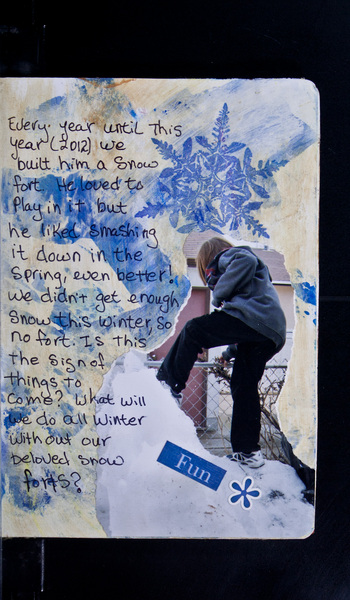 Every year until this
year (2012) we
built him a snow
fort. He loved to
play in it but
he liked smashing
it down in the
spring, even better!
we didn't get enough
snow this winter, so
no fort. Is this
the sign of
things to
come? What will
we do all winter
without our
beloved snow
forts?
Fun